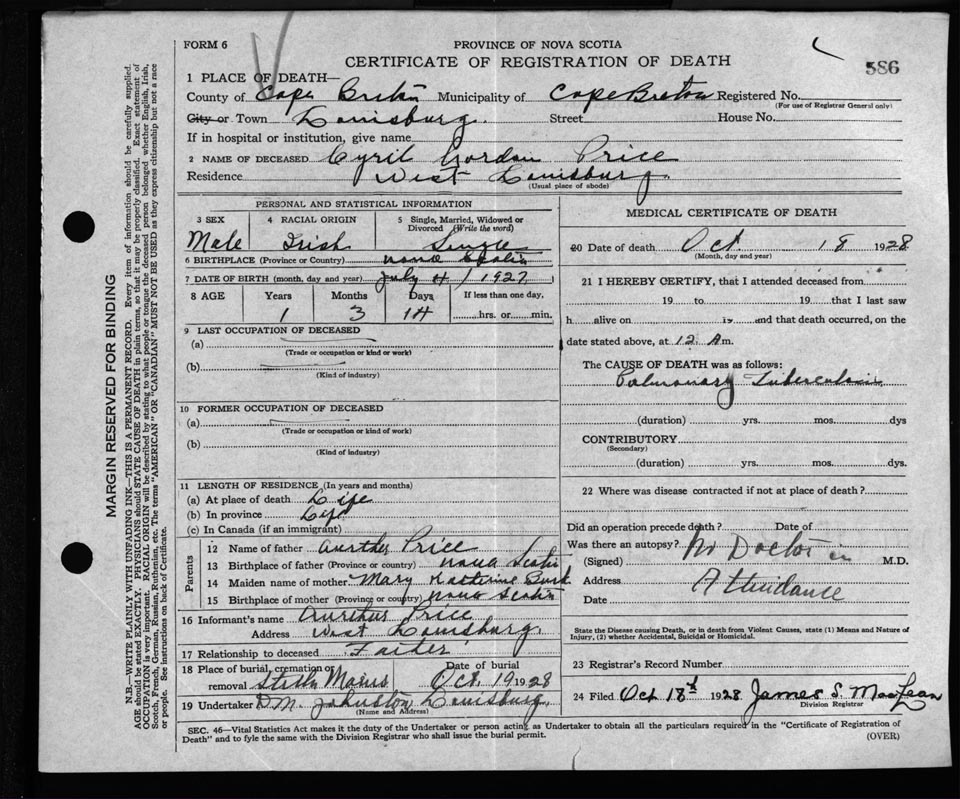 FORM 6
PROVINCE OF NOVA SCOTIA
CERTIFICATE OF REGISTRATION OF DEATH
586
1 PLACE OF DEATH—
County of Cape Breton Municipality of Cape Breton Registered No.
(For use of Registrar General only)
City or Town Louisburg. Street House No.
If in hospital or institution, give name
2 NAME OF DECEASED Cyril Gordon Price
Residence West Louisburg.
(Usual place of abode)
PERSONAL AND STATISTICAL INFORMATION
3 SEX 4 RACIAL ORIGIN 5 Single, Married, Widowed or Divorced (Write the word)
Male Irish Single
6 BIRTHPLACE (Province or Country) Nova Scotia
7 DATE OF BIRTH (month, day and year) July 4 / 1927
8 AGE Years Months Days If less than one day,
1 3 14 hrs. or min.
9 LAST OCCUPATION OF DECEASED
(a)
(Trade or occupation or kind or work)
(b)
(Kind of industry)
10 FORMER OCCUPATION OF DECEASED
(a)
(Trade or occupation or kind of work)
(b)
(Kind of industry)
11 LENGTH OF RESIDENCE (In years and months)
(a) At place of death Life
(b) In province Life
(c) In Canada (if an immigrant)
Parents
12 Name of father Aurther Price
13 Birthplace of father (Province or country) Nova Scotia
14 Maiden name of mother Mary Katherine Burk
15 Birthplace of mother (Province or country) Nova Scotia
16 Informant's name Aurther Price
Address West Louisburg.
17 Relationship to deceased Father
18 Place of burial, cremation or Date of burial
removal Oct. 19 1928
19 Undertaker D.M. Johnston Louisburg.
(Name and Address)
MEDICAL CERTIFICATE OF DEATH
20 Date of death Oct 18 1928
(Month, day and year)
21 I HEREBY CERTIFY, that I attended deceased from
19 to 19 that I last saw
h alive on is and that death occurred, on the
date stated above, at 12 A m.
The CAUSE OF DEATH was as follows:
Pulmonary Tuberculosis
(duration) yrs. mos. dys
CONTRIBUTORY
(Secondary)
(duration) yrs. mos. dys.
22 Where was disease contracted if not at place of death?
Did an operation precede death? Date of
Was there an autopsy? No Doctor in
(Signed) M.D.
Address Attendance
Date
State the Disease causing Death, or in death from Violent Causes, state (1) Means and Nature of
Injury, (2) whether Accidental, Suicidal or Homicidal.
23 Registrar's Record Number
24 Filed Oct 18th 1928 James S. MacLean
Division Registrar
SEC. 46—Vital Statistics Act makes it the duty of the Undertaker or person acting as Undertaker to obtain all the particulars required in the "Certificate of Registration of
Death" and to fyle the same with the Division Registrar who shall issue the burial permit.
(OVER)
MARGIN RESERVED FOR BINDING
N.B.—WRITE PLAINLY WITH UNFADING INK—THIS IS A PERMANENT RECORD. Every item of information should be carefully supplied.
AGE should be stated EXACTLY. PHYSICIANS should STATE CAUSE OF DEATH in plain terms, so that it may be properly classified. Exact statement of
OCCUPATION is very important. RACIAL ORIGIN will be described by stating to what people or tongue the deceased person belonged whether English, Irish,
Scotch, French, German, Russian, Ruthenian, etc. The terms "AMERICAN" OR "CANADIAN" MUST NOT BE USED as they express citizenship but not a race
or people. See instructions on back of Certificate.